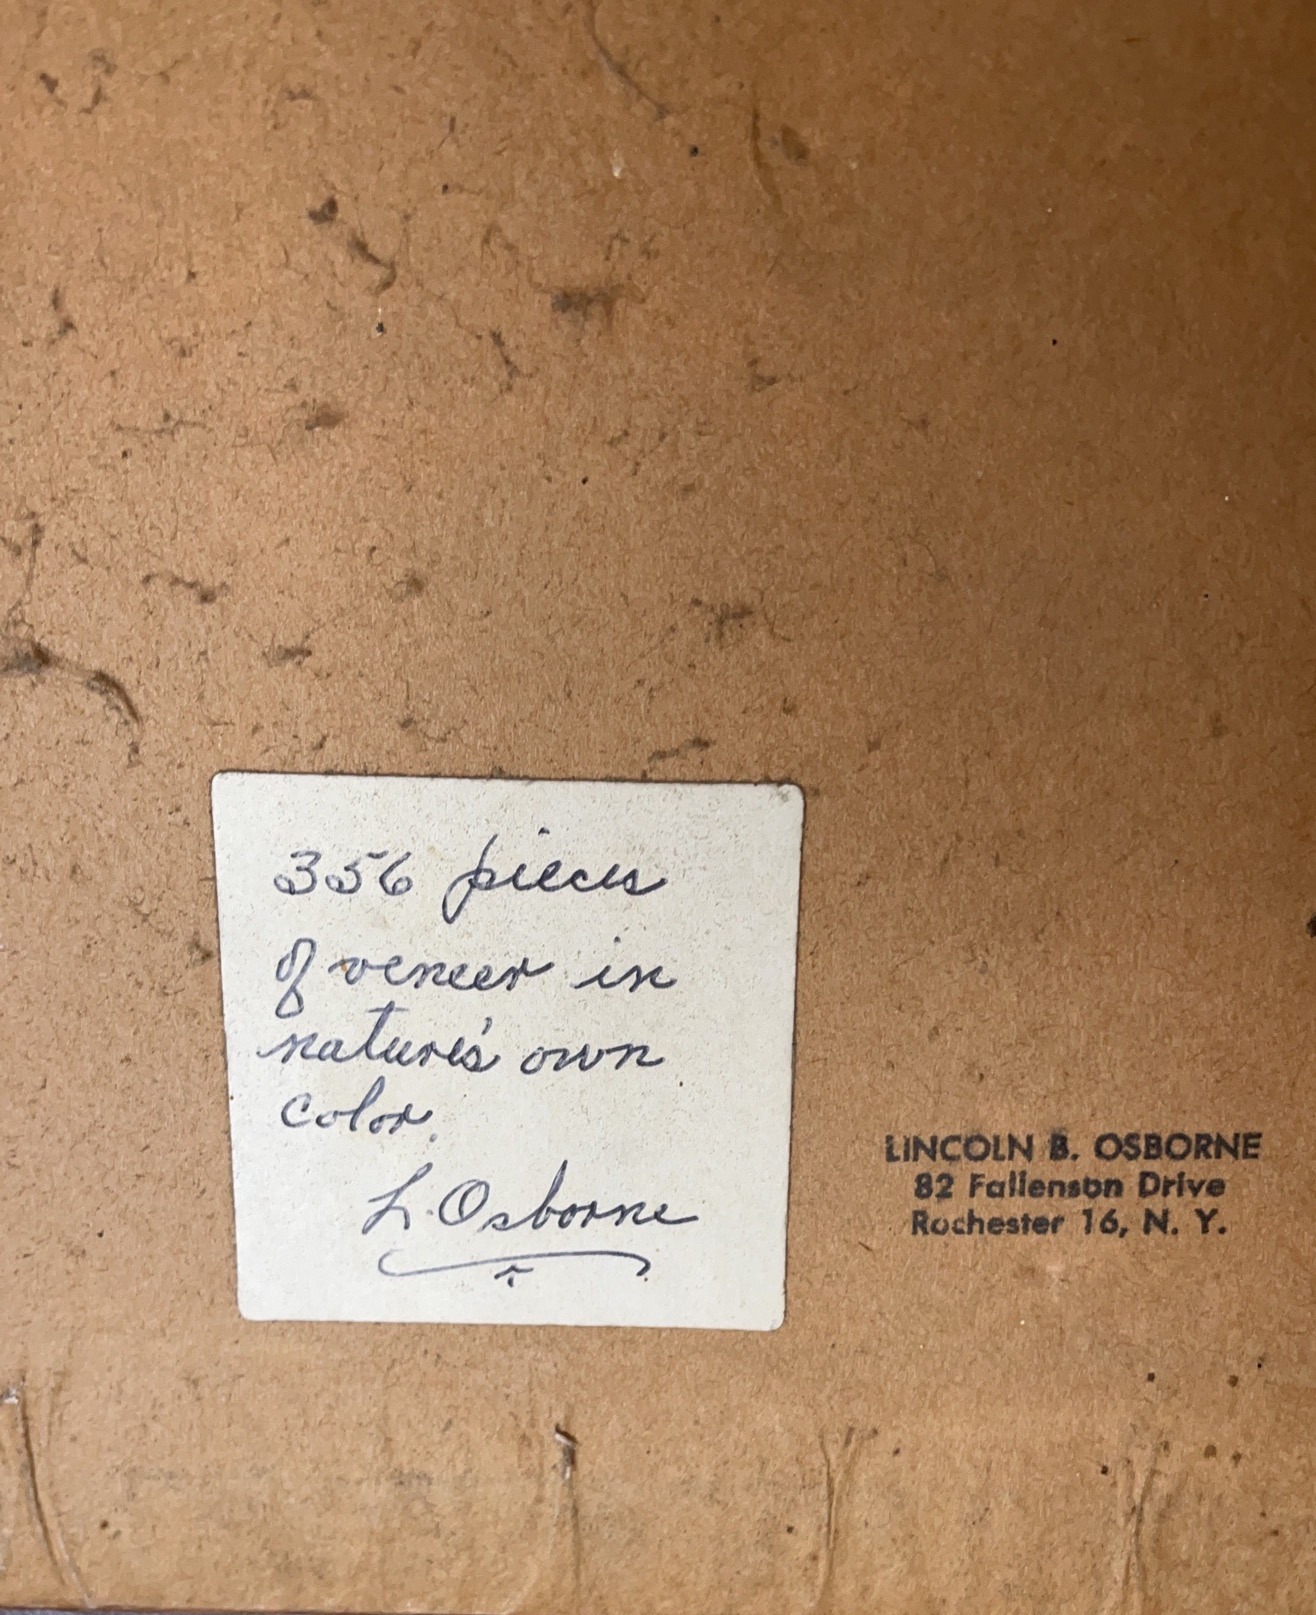 356 pieces
of veneer in
nature's own
color.
L. Osborne
LINCOLN B. OSBORNE
82 Fallenson Drive
Rochester 16, N. Y.